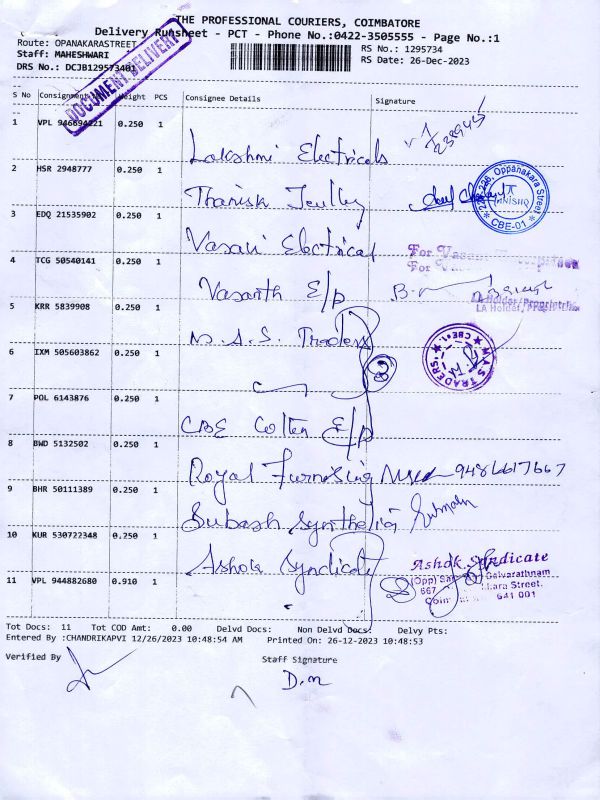 THE PROFESSIONAL COURIERS, COIMBATORE
Delivery Runsheet - PCT - Phone No.:0422-3505555 - Page No.:1
Route: OPANAKARASTREET
RS No.: 1295734
Staff: MAHESHWARI
RS Date: 26-Dec-2023
DRS No.: DCJB129573401
DOCUMENT DELIVERY
S No Consignment Weight PCS Consignee Details Signature
1 VPL 946694221 0.250 1
Lakshmi Electricals
2 HSR 2948777 0.250 1
Thanisk Jeulley
228, Oppanakara Street
TANISHQ
* CBE-01 *
3 EDQ 21535902 0.250 1
Vasavi Electrical
For
For
4 TCG 50540141 0.250 1
Vasanth E/p
LA Holder
5 KRR 5839908 0.250 1
M.A.S. Traders
M.A.S TRADERS * CBE-1 *
6 IXM 505603862 0.250 1
7 POL 6143876 0.250 1
CBE Cotten E/p
8 BWD 5132502 0.250 1
Royal Furnosing 9486617667
9 BHR 50111389 0.250 1
Subash Synthetics
10 KUR 530722348 0.250 1
Ashok Syndicate
Ashok Syndicate
(Opp) Selvarathnam
667 Street,
641 001
11 VPL 944882680 0.910 1
Tot Docs: 11 Tot COD Amt: 0.00 Delvd Docs: Non Delvd Docs: Delvy Pts:
Entered By :CHANDRIKAPVI 12/26/2023 10:48:54 AM Printed On: 26-12-2023 10:48:53
Verified By Staff Signature
D.m